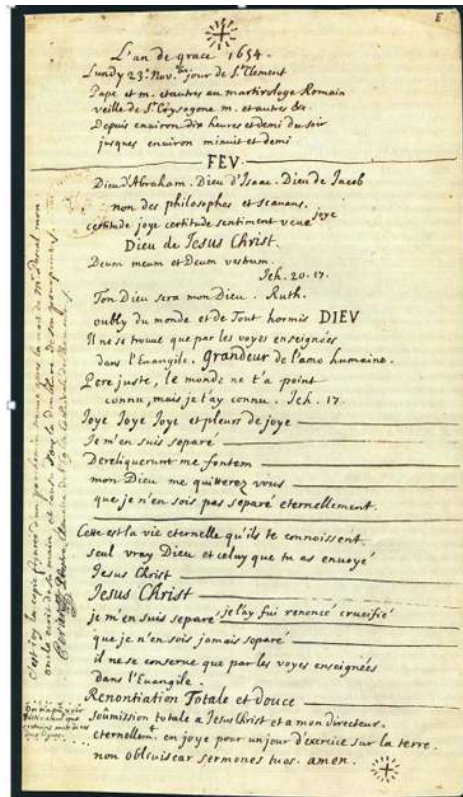 E
L'an de grace 1654.
Lundy 23.e Nov.bre jour de S.t Clement
Pape et m. et autres au martirologe Romain
veille de S.t Crysogone m. et autres &c.
Depuis environ dix heures et demi du soir
jusques environ minuit et demi
FEV.
Dieu d'Abraham. Dieu d'Isaac. Dieu de Jacob
non des philosophes et scavans.
certitude joye certitude sentiment veue joye
Dieu de Jesus Christ.
Deum meum et Deum vestrum.
Jeh. 20. 17.
Ton Dieu sera mon Dieu. Ruth.
oubly du monde et de Tout hormis DIEV
Il ne se trouve que par les voyes enseignées
dans l'Euangile. grandeur de l'ame humaine.
Pere juste, le monde ne t'a point
connu, mais je t'ay connu. Jeh. 17.
Joye Joye Joye et pleurs de joye
Je m'en suis separé
Dereliquerunt me fontem
mon Dieu me quitterez vous
que je n'en sois pas separé eternellement.
Cette est la vie eternelle qu'ils te connoissent
seul vray Dieu et celuy que tu as envoyé
Jesus Christ
Jesus Christ
je m'en suis separé je l'ay fui renoncé crucifié
que je n'en sois jamais separé
il ne se conserve que par les voyes enseignées
dans l'Euangile.
Renontiation Totale et douce
soûmission totale a Jesus Christ et a mon directeur.
eternellem.t en joye pour un jour d'exercice sur la terre.
non obliviscar sermones tuos. amen.
C'est icy la copie figurée d'un parchemin